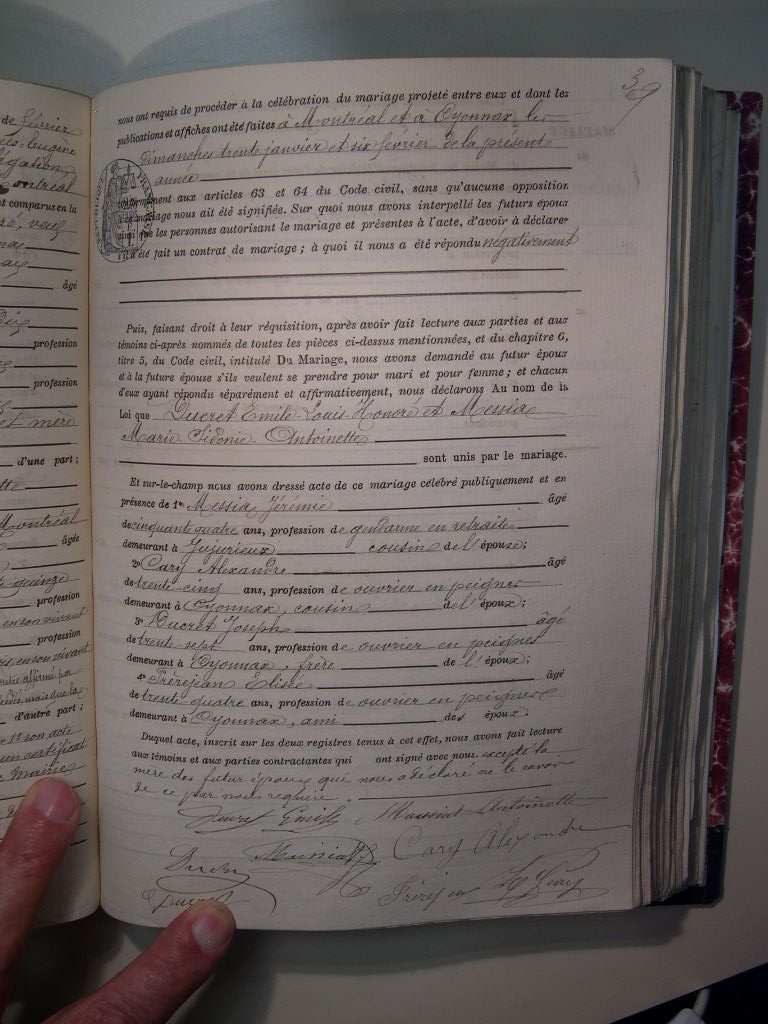 39
nous ont requis de procéder à la célébration du mariage projeté entre eux et dont les
publications et affiches ont été faites à Montréal et à Oyonnax les
dimanches trente janvier et six février de la présente
année
conformément aux articles 63 et 64 du Code civil, sans qu'aucune opposition
à ce mariage nous ait été signifiée. Sur quoi nous avons interpellé les futurs époux
ainsi que les personnes autorisant le mariage et présentes à l'acte, d'avoir à déclarer
s'il a été fait un contrat de mariage ; à quoi il nous a été répondu négativement
Puis, faisant droit à leur réquisition, après avoir fait lecture aux parties et aux
témoins ci-après nommés de toutes les pièces ci-dessus mentionnées, et du chapitre 6,
titre 5, du Code civil, intitulé Du Mariage, nous avons demandé au futur époux
et à la future épouse s'ils veulent se prendre pour mari et pour femme ; et chacun
d'eux ayant répondu séparément et affirmativement, nous déclarons Au nom de la
Loi que Ducret Emile Louis Honoré et Messia
Marie Sidonie Antoinette
sont unis par le mariage.
Et sur-le-champ nous avons dressé acte de ce mariage célébré publiquement et en
présence de 1er Messia Jérémie âgé
de cinquante quatre ans, profession de gendarme en retraite
demeurant à Jujurieux cousin de l'épouse ;
2e Cary Alexandre âgé
de trente cinq ans, profession de ouvrier en peignes
demeurant à Oyonnax, cousin de l'époux ;
3e Ducret Joseph âgé
de trente sept ans, profession de ouvrier en peignes
demeurant à Oyonnax, frère de l'époux ;
4e Frèrejean Elisée âgé
de trente quatre ans, profession de ouvrier en peignes
demeurant à Oyonnax, ami des époux.
Duquel acte, inscrit sur les deux registres tenus à cet effet, nous avons fait lecture
aux témoins et aux parties contractantes qui ont signé avec nous. excepté la
mère des futur époux qui nous a déclaré ne le savoir
de ce par nous requise.
Ducret Emile Antoinette
Cary Alexandre
Ducret